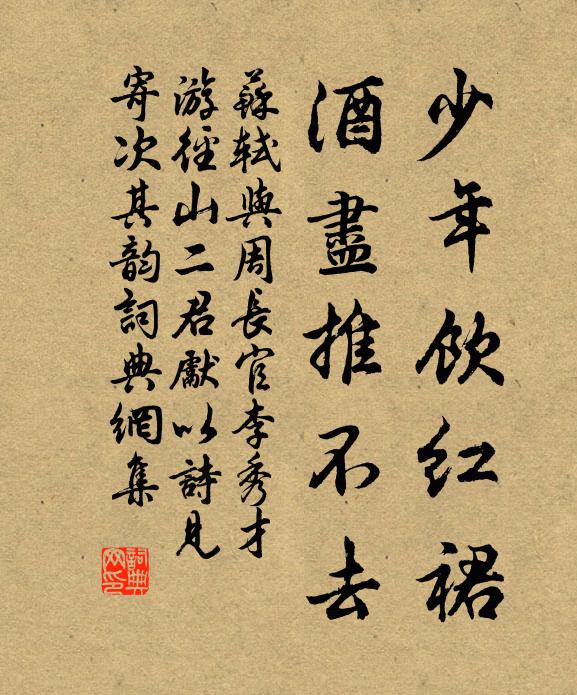 少年飲红裙
酒盡推不去
蘇軾與周長官李秀才
游徑山二君獻以詩見
寄次其韵詞典網集
詞典网印